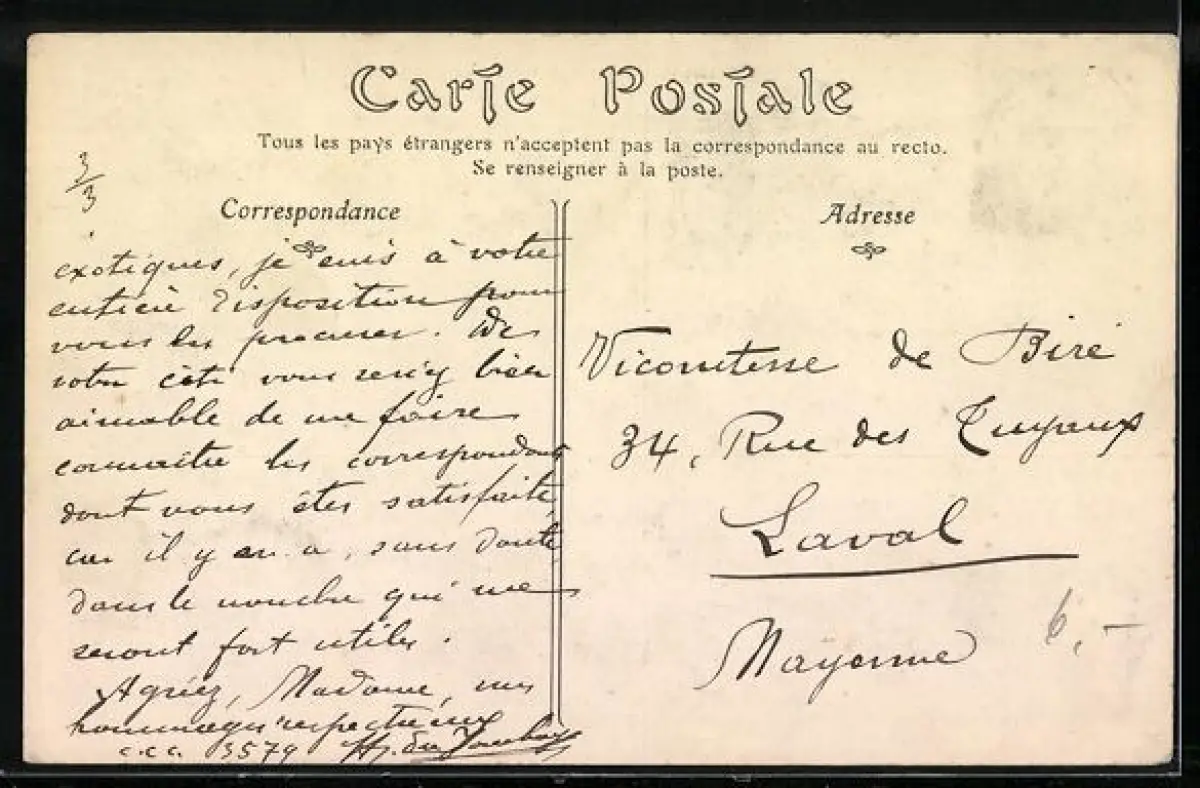 Carte Postale
Tous les pays étrangers n'acceptent pas la correspondance au recto.
Se renseigner à la poste.
3/3
Correspondance
exotiques, je suis à votre
entière disposition pour
vous les procurer. De
votre côté vous seriez bien
aimable de me faire
connaître les correspondants
dont vous êtes satisfaite
car il y en a, sans doute,
dans le nombre qui me
seront fort utiles.
Agréez, Madame, mes
hommages respectueux
c.c.c. 3579
Adresse
Vicomtesse de Biré
34, Rue des Tuyaux
Laval
Mayenne
6,-